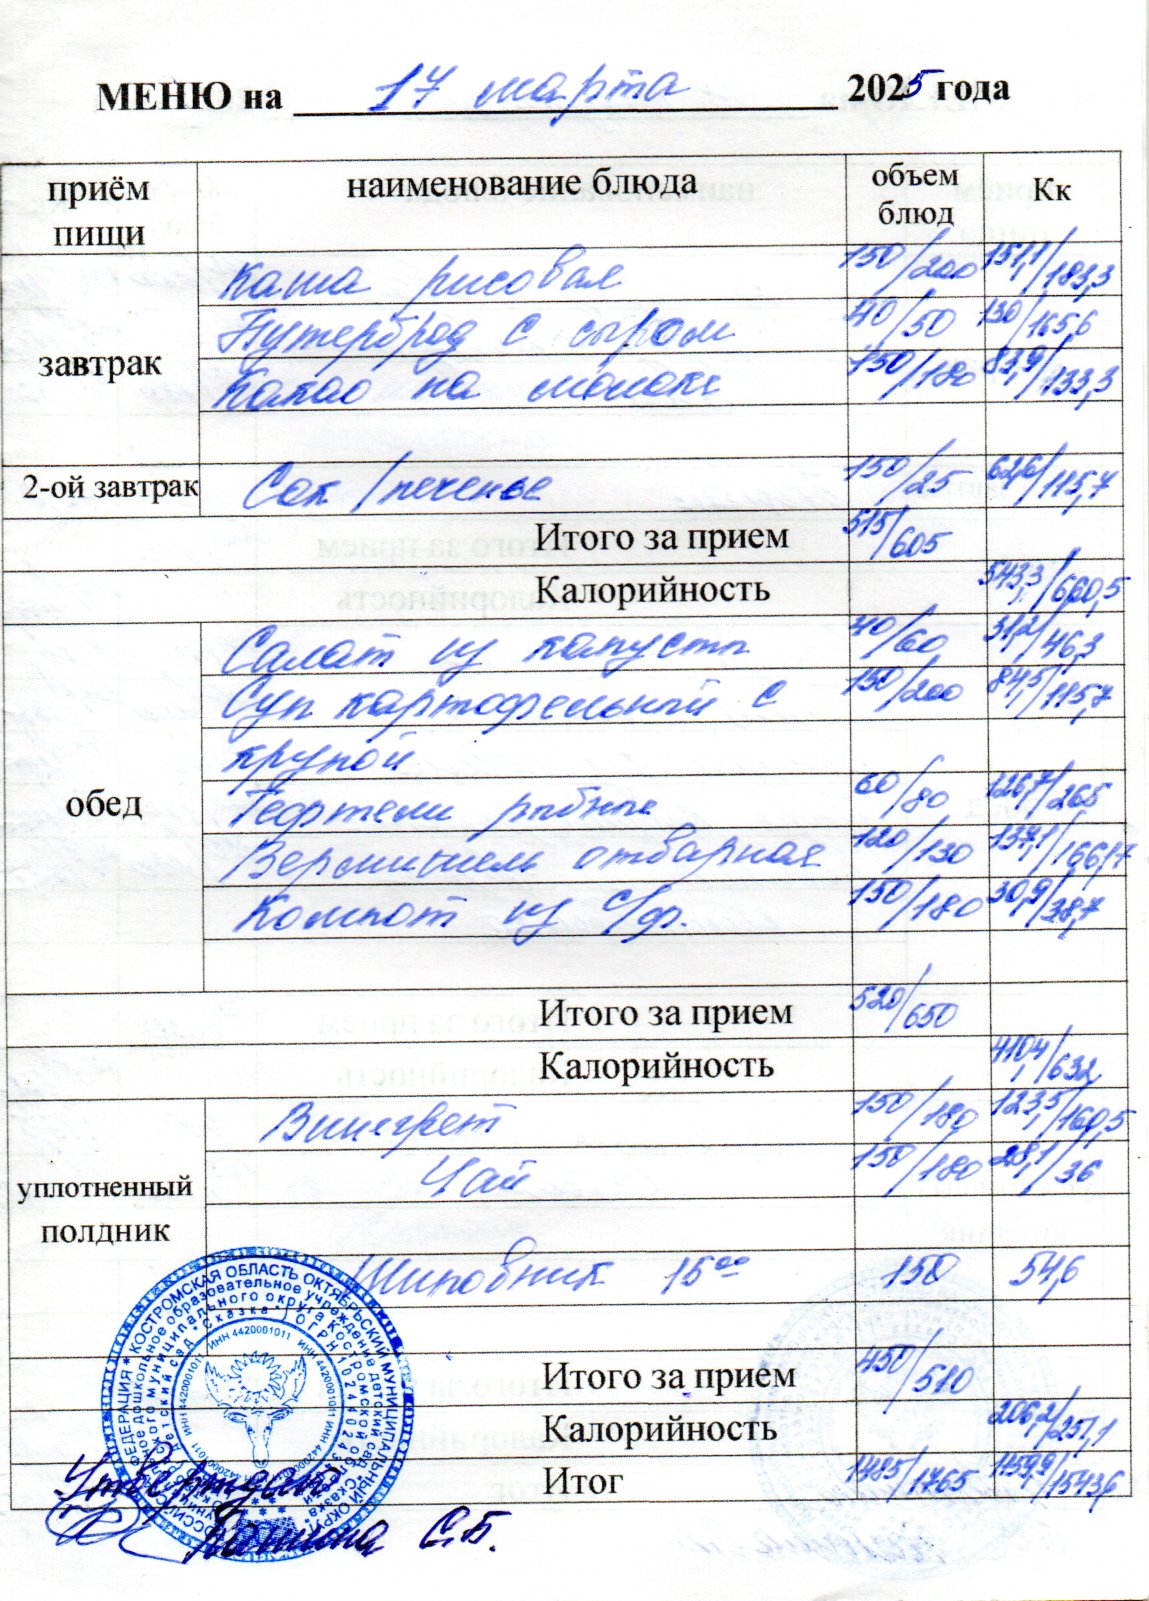 МЕНЮ на 17 марта 2025 года
приём пищи наименование блюда объем блюд Кк
завтрак
Каша рисовая 150/200 151,1/183,3
Бутерброд с сыром 40/50 130/165,6
Какао на молоке 150/180 83,9/133,3
2-ой завтрак Сок/печенье 150/25 62,6/115,7
Итого за прием 515/605
Калорийность 543,3/660,5
обед
Салат из капусты 40/60 31,2/46,3
Суп картофельный с 150/200 84,5/115,7
крупой
Тефтели рыбные 60/80 126,7/265
Вермишель отварная 120/130 137,1/166,17
Компот из с/ф. 150/180 30,9/38,7
Итого за прием 520/650
Калорийность 410,4/632
уплотненный полдник
Винегрет 150/180 123,5/160,5
Чай 150/180 28,1/36
Шиповник 15⁰⁰ 150 54,6
Итого за прием 450/510
Калорийность 206,2/251,1
Итог 1485/1765 1159,9/1543,6
Утверждаю
С.Б.
КОСТРОМСКАЯ ОБЛАСТЬ ОКТЯБРЬСКИЙ МУНИЦИПАЛЬНЫЙ ОКРУГ
ИНН 4420001011